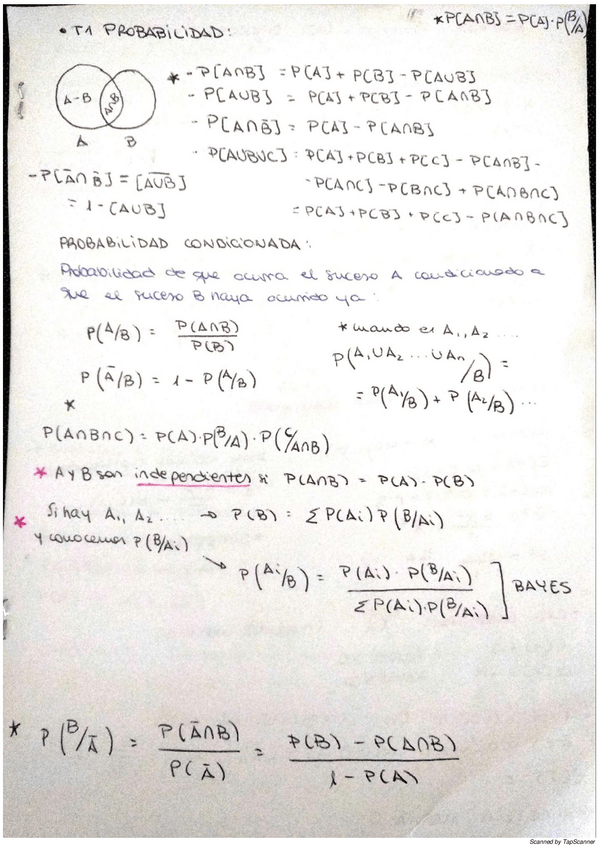 *P[A∩B] = P[A]·P(B/A)
• T1 PROBABILIDAD:
A-B A∩B
A B
* - P[A∩B] = P[A] + P[B] - P[A∪B]
- P[A∪B] = P[A] + P[B] - P[A∩B]
- P[A∩B̄] = P[A] - P[A∩B]
- P[A∪B∪C] = P[A] + P[B] + P[C] - P[A∩B] -
- P[A∩C] - P[B∩C] + P[A∩B∩C]
= P[A] + P[B] + P[C] - P[A∩B∩C]
- P[Ā∩B̄] = [A̅∪̅B̅]
= 1 - [A∪B]
PROBABILIDAD CONDICIONADA:
Probabilidad de que ocurra el suceso A condicionado a
que el suceso B haya ocurrido ya:
P(A/B) = P(A∩B) / P(B)
P(Ā/B) = 1 - P(A/B)
* cuando es A₁, A₂ ....
P(A₁∪A₂ ...∪Aₙ/B) =
= P(A₁/B) + P(A₂/B) ...
*
P(A∩B∩C) = P(A)·P(B/A)·P(C/A∩B)
* A y B son independientes si P(A∩B) = P(A)·P(B)
* Si hay A₁, A₂ .... → P(B) = Σ P(Ai) P(B/Ai)
y conocemos P(B/Ai)
→ P(Ai/B) = P(Ai)·P(B/Ai) / Σ P(Ai)·P(B/Ai) ] BAYES
* P(B/Ā) = P(Ā∩B) / P(Ā) = P(B) - P(A∩B) / 1 - P(A)
Scanned by TapScanner